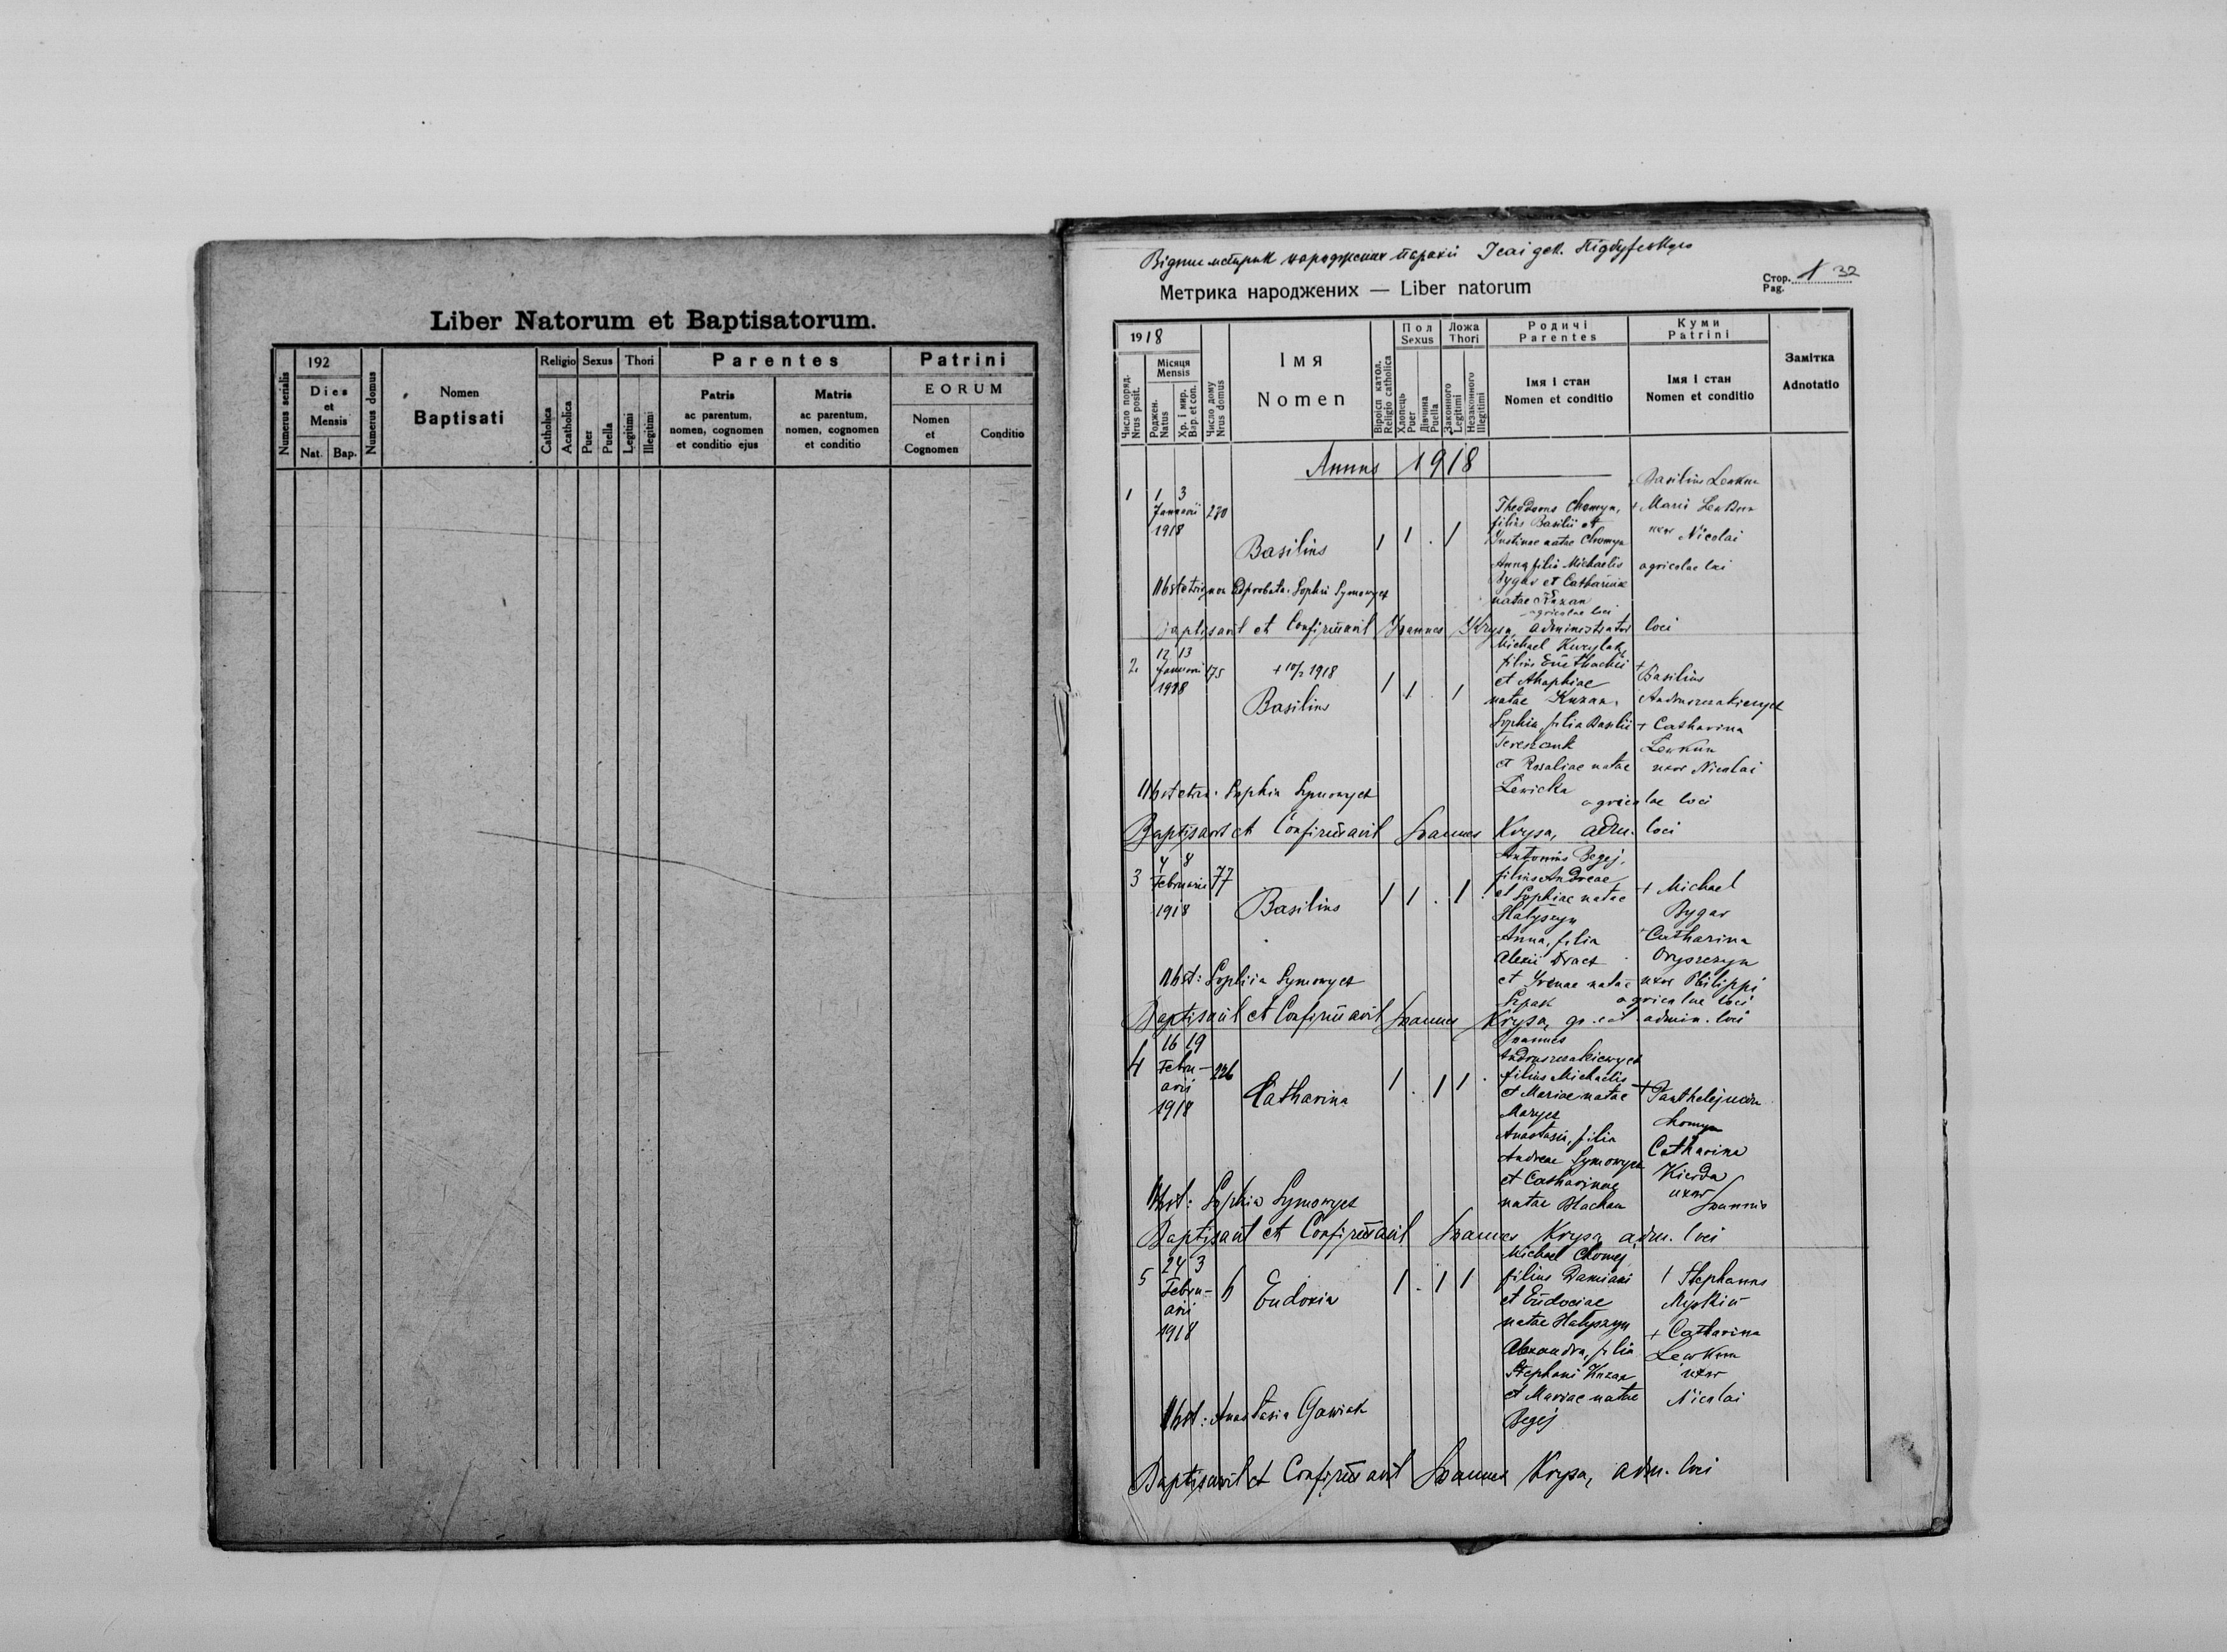 Liber Natorum et Baptisatorum.
Numerus serialis
192
Dies
et
Mensis
Nat.
Bap.
Numerus domus
Nomen
Baptisati
Religio
Catholica
Acatholica
Sexus
Puer
Puella
Thori
Legitimi
Illegitimi
Parentes
Patris
ac parentum,
nomen, cognomen
et conditio ejus
Matris
ac parentum,
nomen, cognomen
et conditio
Patrini
EORUM
Nomen
et
Cognomen
Conditio
народжених парохії
Метрика народжених — Liber natorum
Стор.
Pag.
32
1918
Число поряд.
Nrus posit.
Місяця
Mensis
Роджен.
Natus
Хр. і мир.
Bap. et con.
Число дому
Nrus domus
Імя
Nomen
Віроісп. катол.
Religio catholica
Пол
Sexus
Хлопець
Puer
Дівчина
Puella
Ложа
Thori
Законного
Legitimi
Незаконного
Illegitimi
Родичі
Parentes
Імя і стан
Nomen et conditio
Куми
Patrini
Імя і стан
Nomen et conditio
Замітка
Adnotatio
Annus 1918
1
1 3
Januarii
1918
230
Basilius
1 1 . 1
Theodorus Chomyn,
filius Basilii et
Justinae natae Chomyn
Anna filia Michaelis
Bygar et Catharinae
natae Kuzan
agricolae loci
Basilius Lewkun
+ Maria Lewkun
uxor Nicolai
agricolae loci
Obstetrix non adprobata: Sophia Symowycz
Baptisavit et Confirmavit Ioannes Krysa, administrator loci
2
12 13
Januarii
1918
175
+ 10/2 1918
Basilius
1 1 . 1
Michael Kurylak,
filius Eusthachii
et Ahaphiae
natae Kuzan.
Sophia filia Basilii
Tereszczuk
et Rosaliae natae
Lewicka
agricolae loci
+ Basilius
Andruszczakiewycz
+ Catharina
Lewkun
uxor Nicolai
Obstetrix: Sophia Symowycz
Baptisavit et Confirmavit Ioannes Krysa, adm. loci
3
4 8
Februarii
1918
77
Basilius
1 1 . 1
Antonius Begej,
filius Andreae
et Sophiae natae
Hatyszyn
Anna, filia
Alexii Dracz
et Irenae natae
Szpak
+ Michael
Bygar
+ Catharina
Oryszczyn
uxor Philippi
agricolae loci
Obst: Sophia Symowycz
Baptisavit et Confirmavit Ioannes Krysa, gr. cat. admin. loci
4
16 19
Febru-
arii
1918
226
Catharina
1 . 1 1 .
Ioannes
Andruszczakiewycz
filius Michaelis
et Mariae natae
Mazycz
Anastasia, filia
Andreae Symowycz
et Catharinae
natae Stachan
+ Panthelejmon
Chomyn
Catharina
Kierda
uxor
Ioannis
Obst: Sophia Symowycz
Baptisavit et Confirmavit Ioannes Krysa, adm. loci
5
24 3
Febru-
arii
1918
6
Eudoxia
1 . 1 1
Michael Chomyn
filius Damiani
et Eudociae
natae Hatyszyn
Alexandra, filia
Stephani Kuzan
et Mariae natae
Begej
Stephanus
+ Catharina
Lewkun
uxor
Nicolai
Obst: Anastasia Gawiak
Baptisavit et Confirmavit Ioannes Krysa, adm. loci